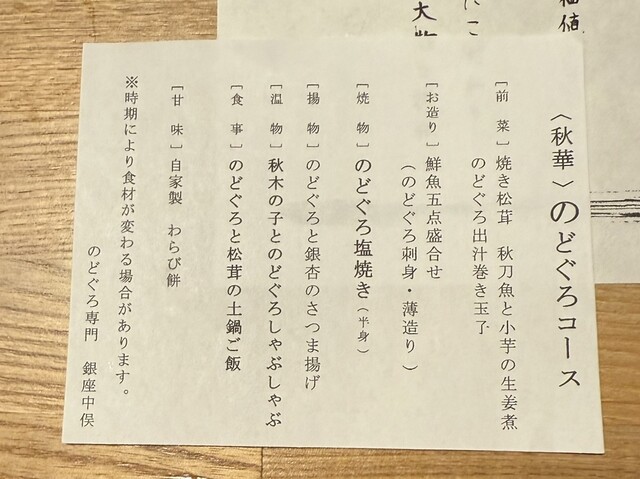 〈秋華〉のどぐろコース
［前　菜］焼き松茸　秋刀魚と小芋の生姜煮
のどぐろ出汁巻き玉子
［お造り］鮮魚五点盛合せ
（のどぐろ刺身・薄造り）
［焼　物］のどぐろ塩焼き（半身）
［揚　物］のどぐろと銀杏のさつま揚げ
［温　物］秋木の子とのどぐろしゃぶしゃぶ
［食　事］のどぐろと松茸の土鍋ご飯
［甘　味］自家製　わらび餅
※時期により食材が変わる場合があります。
のどぐろ専門　銀座中俣